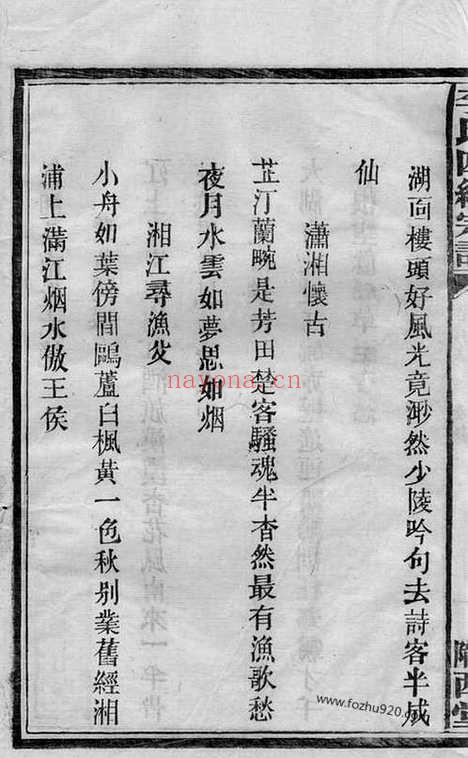 李氏四修宗譜
隴西堂
湖面樓頭好風光竟渺然少陵吟句去詩客半成
仙
瀟湘懷古
芷汀蘭畹是芳田楚客騷魂半杳然最有漁歌愁
夜月水雲如夢思如烟
湘江尋漁父
小舟如葉傍閒鷗蘆白楓黃一色秋别業舊經湘
浦上滿江烟水傲王侯
nayona.cn
www.fozhu920.com